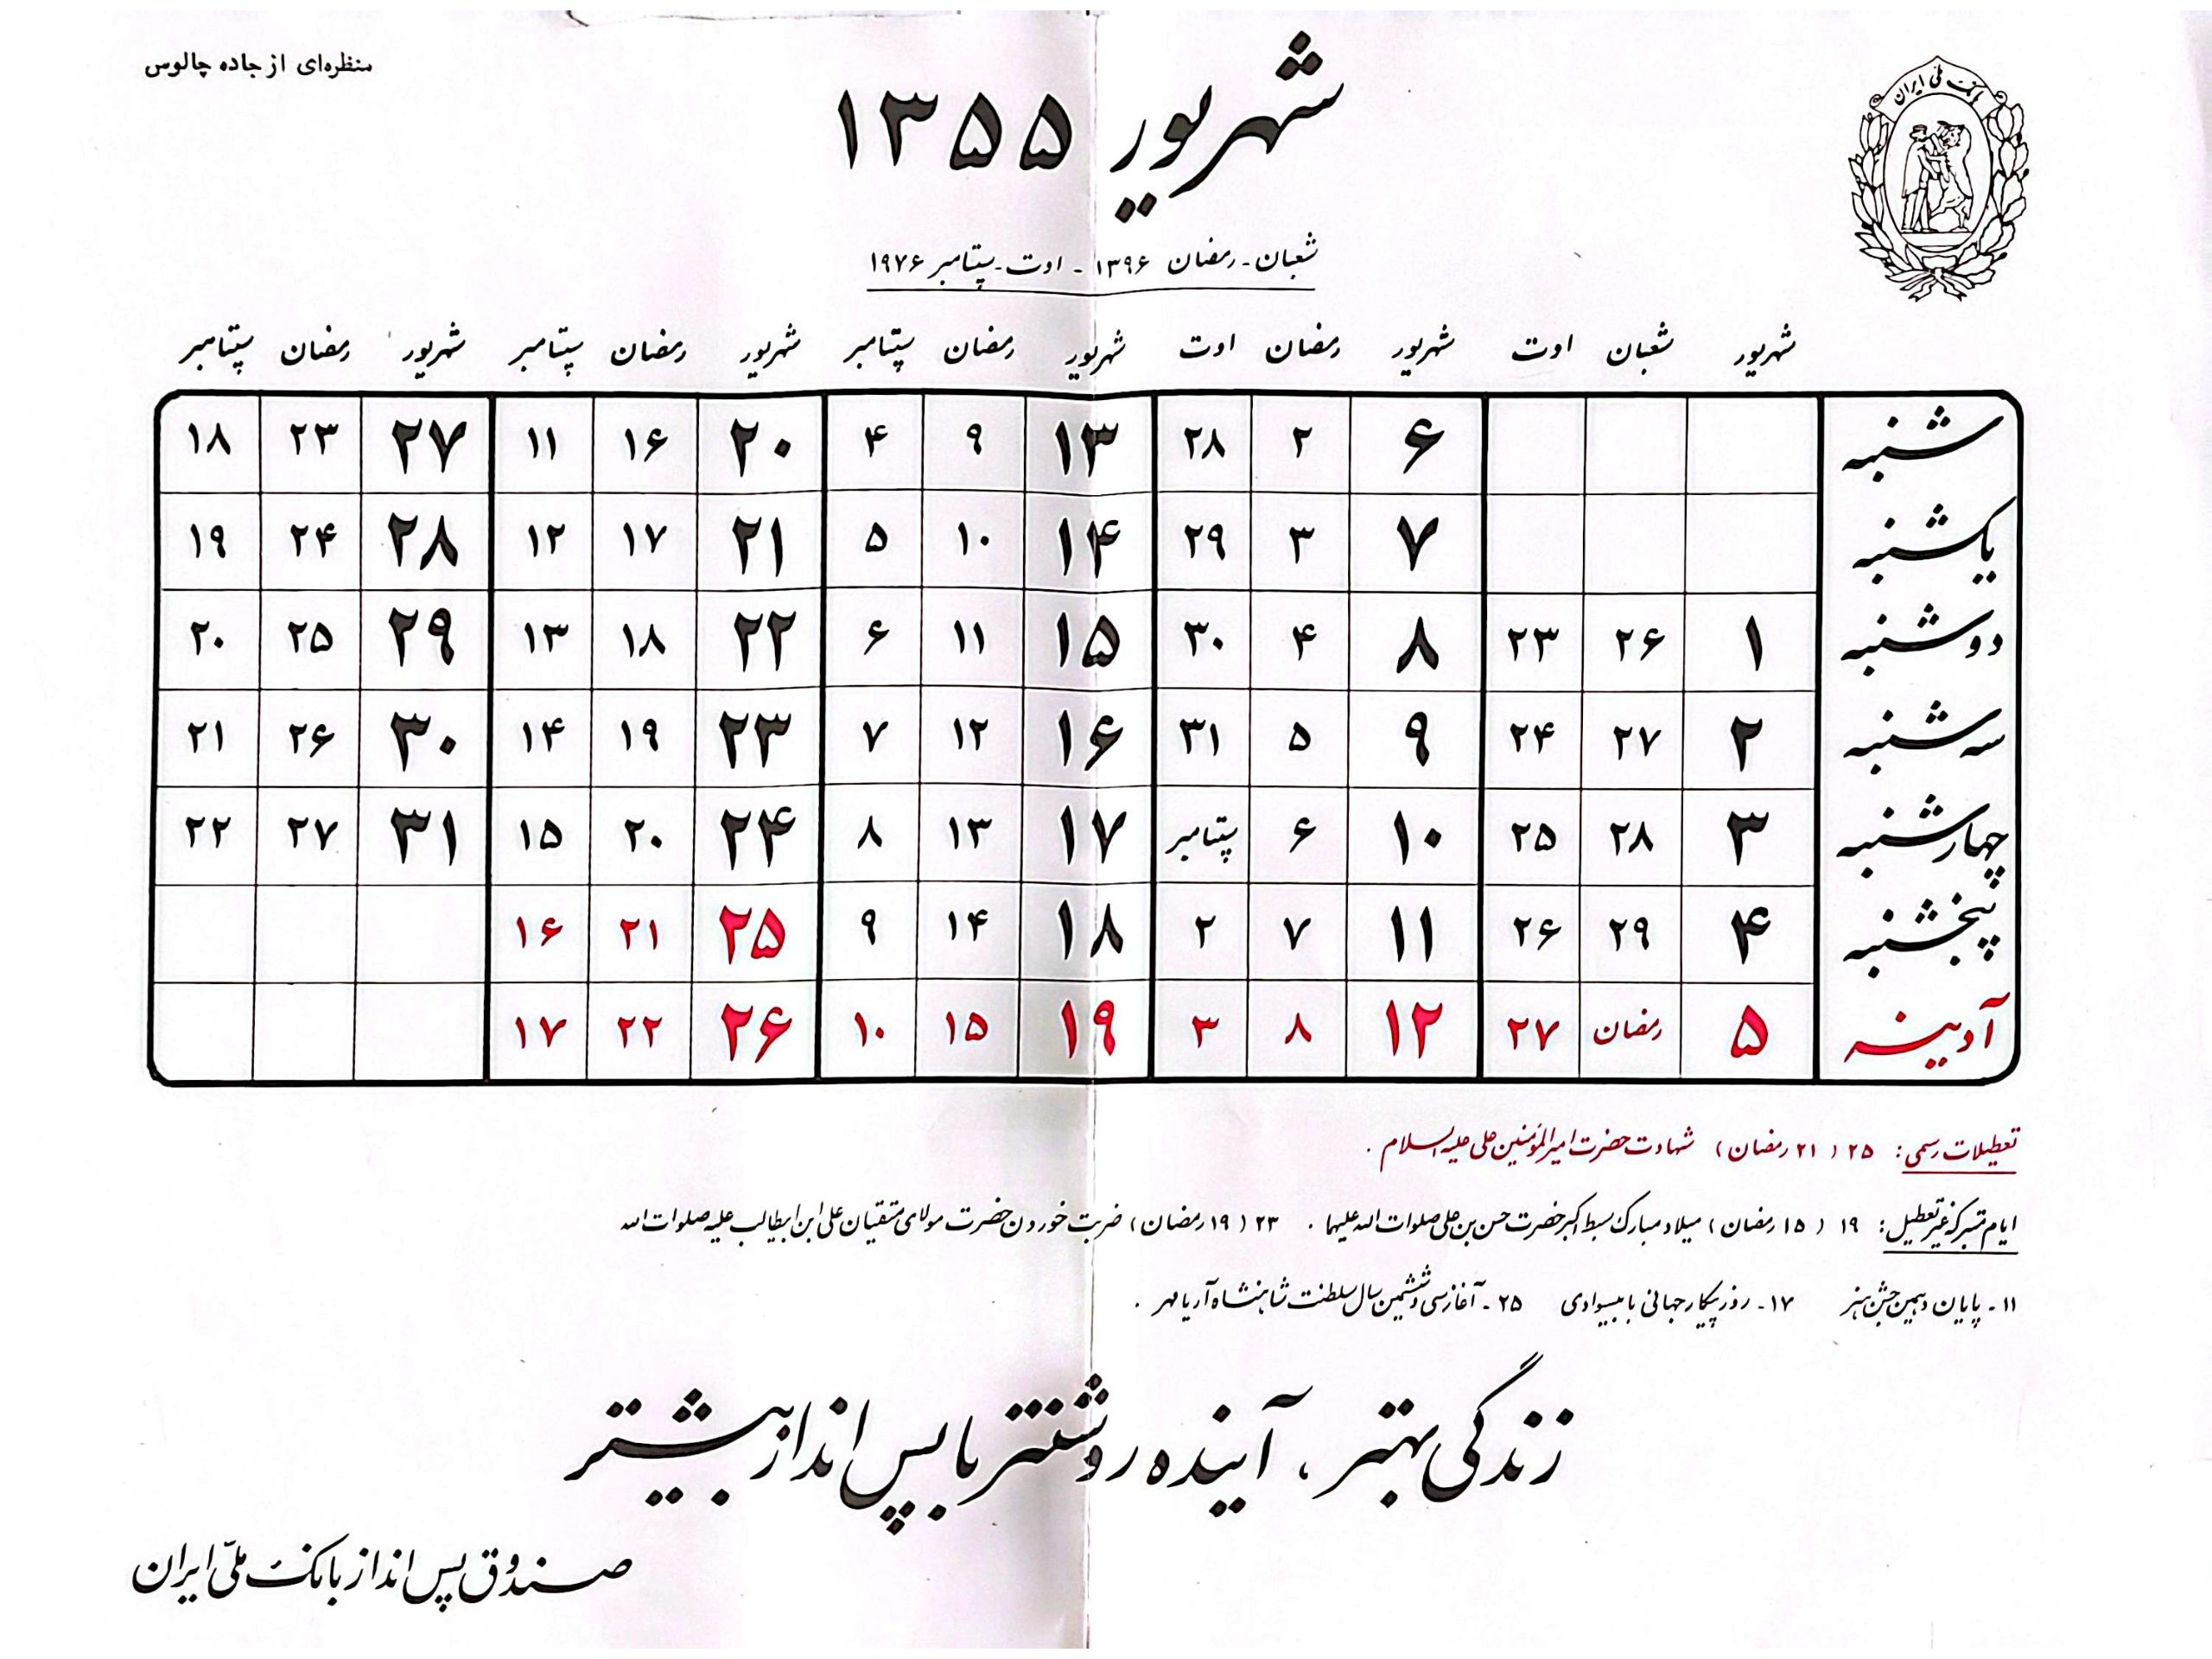 منظره‌ای از جاده چالوس
بانک ملی ایران
شهریور ۱۳۵۵
شعبان - رمضان ۱۳۹۶ - اوت - سپتامبر ۱۹۷۶
شهریور شعبان اوت شهریور رمضان اوت شهریور رمضان سپتامبر شهریور رمضان سپتامبر شهریور رمضان سپتامبر
شنبه ۶ ۲ ۲۸ ۱۳ ۹ ۴ ۲۰ ۱۶ ۱۱ ۲۷ ۲۳ ۱۸
یکشنبه ۷ ۳ ۲۹ ۱۴ ۱۰ ۵ ۲۱ ۱۷ ۱۲ ۲۸ ۲۴ ۱۹
دوشنبه ۱ ۲۶ ۲۳ ۸ ۴ ۳۰ ۱۵ ۱۱ ۶ ۲۲ ۱۸ ۱۳ ۲۹ ۲۵ ۲۰
سه شنبه ۲ ۲۷ ۲۴ ۹ ۵ ۳۱ ۱۶ ۱۲ ۷ ۲۳ ۱۹ ۱۴ ۳۰ ۲۶ ۲۱
چهارشنبه ۳ ۲۸ ۲۵ ۱۰ ۶ سپتامبر ۱۷ ۱۳ ۸ ۲۴ ۲۰ ۱۵ ۳۱ ۲۷ ۲۲
پنجشنبه ۴ ۲۹ ۲۶ ۱۱ ۷ ۲ ۱۸ ۱۴ ۹ ۲۵ ۲۱ ۱۶
آدینه ۵ رمضان ۲۷ ۱۲ ۸ ۳ ۱۹ ۱۵ ۱۰ ۲۶ ۲۲ ۱۷
تعطیلات رسمی: ۲۵ (۲۱ رمضان) شهادت حضرت امیرالمؤمنین علی علیه السلام.
ایام متبرکه غیر تعطیل: ۱۹ (۱۵ رمضان) میلاد مبارک سبط اکبر حضرت حسن بن علی صلوات الله علیهما. ۲۳ (۱۹ رمضان) ضربت خوردن حضرت مولای متقیان علی ابن ابیطالب علیه صلوات الله
۱۱ - پایان دهمین جشن هنر ۱۷ - روز پیکار جهانی با بیسوادی ۲۵ - آغاز سی و ششمین سال سلطنت شاهنشاه آریامهر.
زندگی بهتر، آینده روشنتر با پس انداز بیشتر
صندوق پس انداز بانک ملی ایران